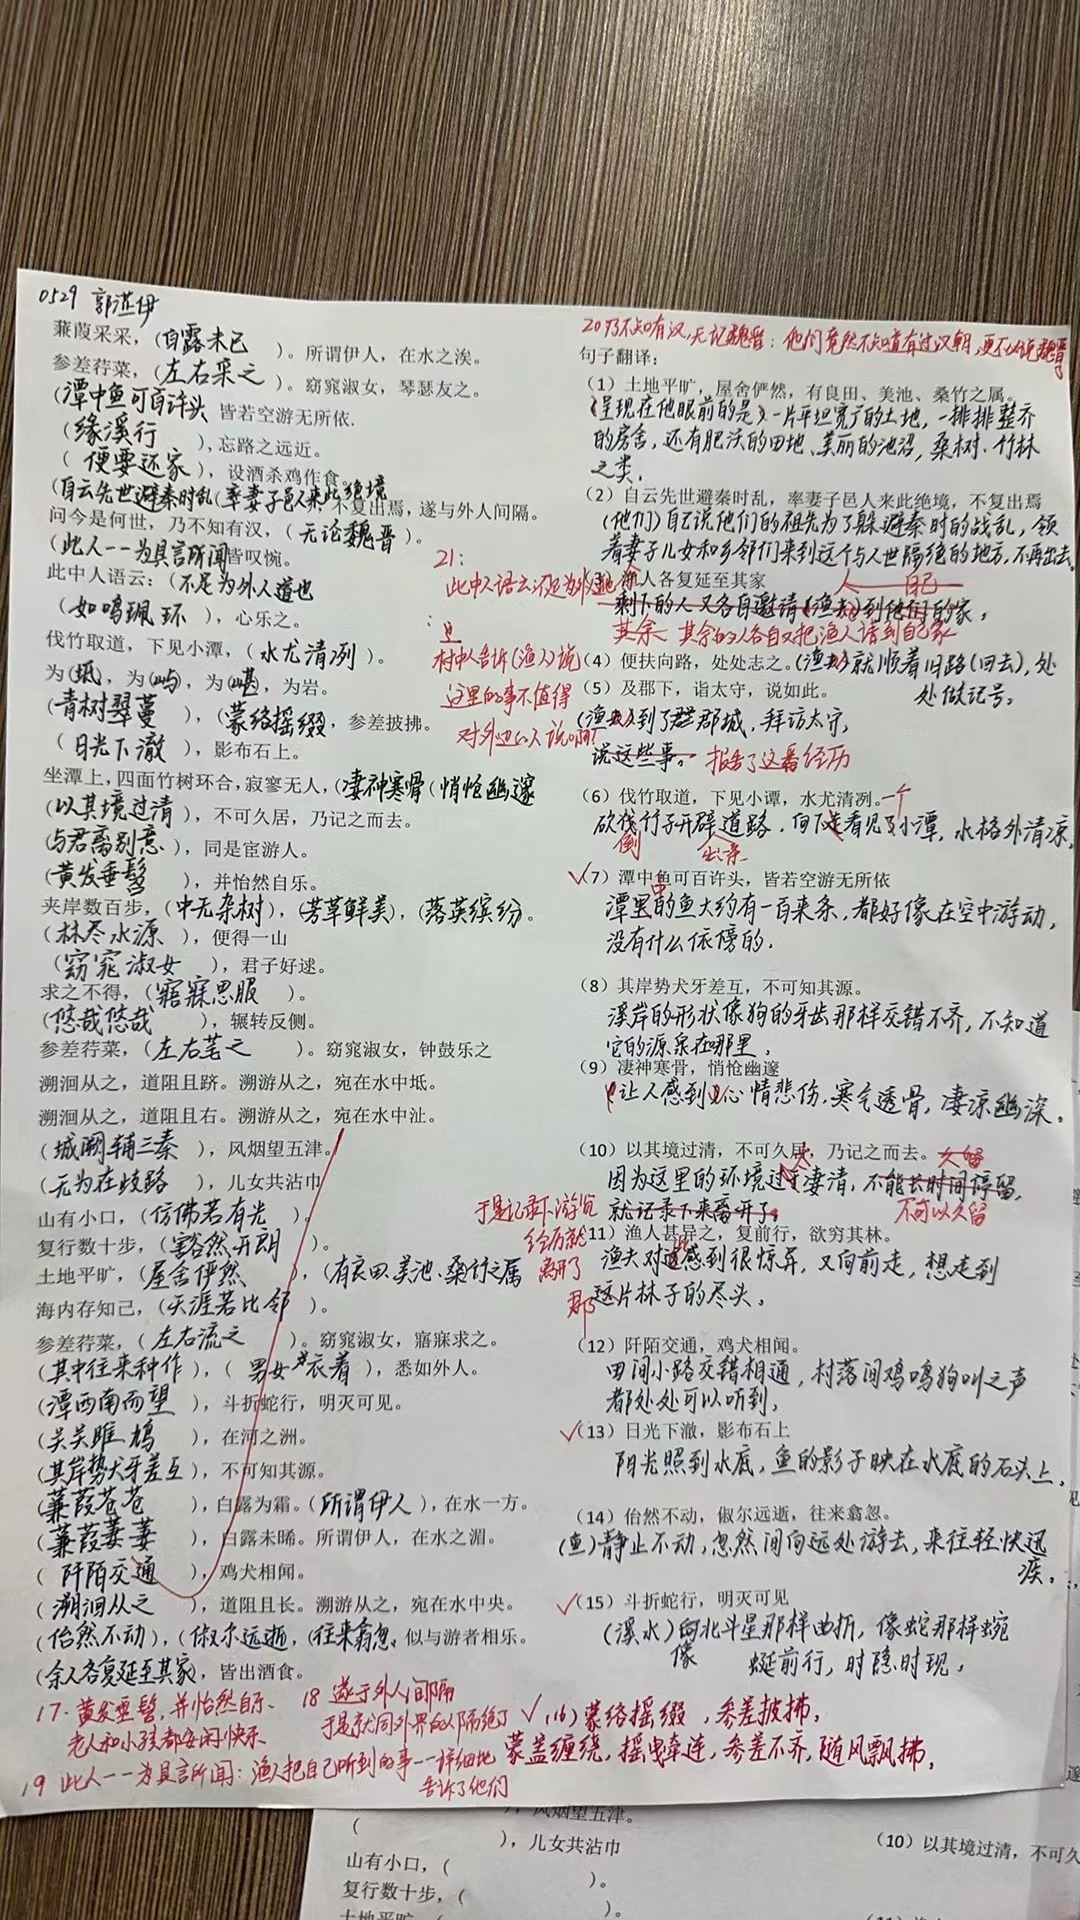 0529 郭
蒹葭采采，(白露未已）。所谓伊人，在水之涘。
参差荇菜，(左右采之）。窈窕淑女，琴瑟友之。
(潭中鱼可百许头 皆若空游无所依.
(缘溪行），忘路之远近。
(便要还家），设酒杀鸡作食。
(自云先世避秦时乱(率妻子邑人来此绝境 不复出焉，遂与外人间隔。
问今是何世，乃不知有汉，(无论魏晋）。
(此人一一为具言所闻 皆叹惋。
此中人语云：(不足为外人道也
(如鸣珮环），心乐之。
伐竹取道，下见小潭，(水尤清冽）。
为(坻)，为(屿)，为(嵁)，为岩。
(青树翠蔓），(蒙络摇缀，参差披拂。
(日光下澈），影布石上。
坐潭上，四面竹树环合，寂寥无人，(凄神寒骨(悄怆幽邃
(以其境过清），不可久居，乃记之而去。
(与君离别意），同是宦游人。
(黄发垂髫），并怡然自乐。
夹岸数百步，(中无杂树），(芳草鲜美），(落英缤纷。
(林尽水源），便得一山
(窈窕淑女），君子好逑。
求之不得，(寤寐思服）。
(悠哉悠哉），辗转反侧。
参差荇菜，(左右芼之）。窈窕淑女，钟鼓乐之
溯洄从之，道阻且跻。溯游从之，宛在水中坻。
溯洄从之，道阻且右。溯游从之，宛在水中沚。
(城阙辅三秦），风烟望五津。
(无为在歧路），儿女共沾巾
山有小口，(仿佛若有光）。
复行数十步，(豁然开朗）。
土地平旷，(屋舍俨然），(有良田、美池、桑竹之属
海内存知己，(天涯若比邻）。
参差荇菜，(左右流之）。窈窕淑女，寤寐求之。
(其中往来种作），(男女衣着），悉如外人。
(潭西南而望），斗折蛇行，明灭可见。
(关关雎鸠），在河之洲。
(其岸势犬牙差互），不可知其源。
(蒹葭苍苍），白露为霜。(所谓伊人），在水一方。
(蒹葭萋萋），白露未晞。所谓伊人，在水之湄。
(阡陌交通），鸡犬相闻。
(溯洄从之），道阻且长。溯游从之，宛在水中央。
(佁然不动），(俶尔远逝，(往来翕忽，似与游者相乐。
(余人各复延至其家，皆出酒食。
17. 黄发垂髫，并怡然自乐、
老人和小孩都安闲快乐
18 遂于外人间隔
于是就同外界的人隔绝了
19 此人一一为具言所闻：渔人把自己听到的事一一详细地
告诉了他们
20 乃不知有汉，无论魏晋：他们竟然不知道有过汉朝，更不必说魏晋
句子翻译：
（1）土地平旷，屋舍俨然，有良田、美池、桑竹之属。
(呈现在他眼前的是)一片平坦宽广的土地，一排排整齐
的房舍，还有肥沃的田地、美丽的池沼，桑树、竹林
之类.
（2）自云先世避秦时乱，率妻子邑人来此绝境，不复出焉
(他们)自己说他们的祖先为了躲避秦时的战乱，领
着妻子儿女和乡邻们来到这个与人世隔绝的地方，不再出去。
21：
此中人语云不足为外人道也
村中人告诉(渔人)说
这里的事不值得
对外边的人说啊!
人各复延至其家
人 自己
剩下的人又各自邀请(渔夫)到他们的家，
其余 其余的人各自又把渔人请到自己家
（4）便扶向路，处处志之。(渔夫)就顺着旧路(回去)，处
处做记号。
（5）及郡下，诣太守，说如此。
(渔夫)到了郡城，拜访太守，
说这些事。报告了这番经历
（6）伐竹取道，下见小谭，水尤清冽。一个
砍伐竹子开辟道路，向下走看见了小潭，水格外清凉，
倒 出来
（7）潭中鱼可百许头，皆若空游无所依
中
潭里的鱼大约有一百来条，都好像在空中游动，
没有什么依傍的.
（8）其岸势犬牙差互，不可知其源。
溪岸的形状像狗的牙齿那样交错不齐，不知道
它的源泉在哪里。
（9）凄神寒骨，悄怆幽邃
让人感到心情悲伤，寒气透骨，凄凉幽深。
（10）以其境过清，不可久居，乃记之而去。久留
因为这里的环境过于凄清，不能长时间停留，
于是记录下游览 就记录下来离开了。 不可以久留
经历就
离开了
（11）渔人甚异之，复前行，欲穷其林。
渔夫对此感到很惊异，又向前走，想走到
那 这片林子的尽头。
（12）阡陌交通，鸡犬相闻。
田间小路交错相通，村落间鸡鸣狗叫之声
都处处可以听到，
（13）日光下澈，影布石上
阳光照到水底，鱼的影子映在水底的石头上。
（14）佁然不动，俶尔远逝，往来翕忽。
(鱼)静止不动，忽然间向远处游去，来往轻快迅
疾。
（15）斗折蛇行，明灭可见
(溪水)向北斗星那样曲折，像蛇那样蜿
像 蜒前行，时隐时现。
(16) 蒙络摇缀，参差披拂。
蒙盖缠绕，摇曳牵连，参差不齐，随风飘拂。
，风烟望五津。
（ ），儿女共沾巾
山有小口，（ ）。
复行数十步，（ ）。
土地平旷
（10）以其境过清，不可久